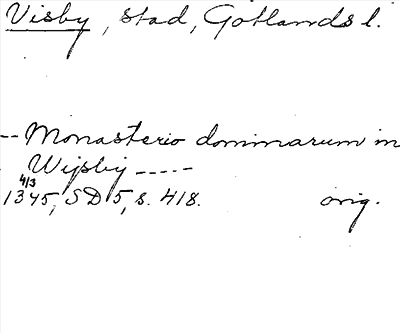 Visby, stad, Gotlands l.
-- Monasterio dominarum in
Wijsby -----
4/3
1345, SD 5, s. 418. orig.